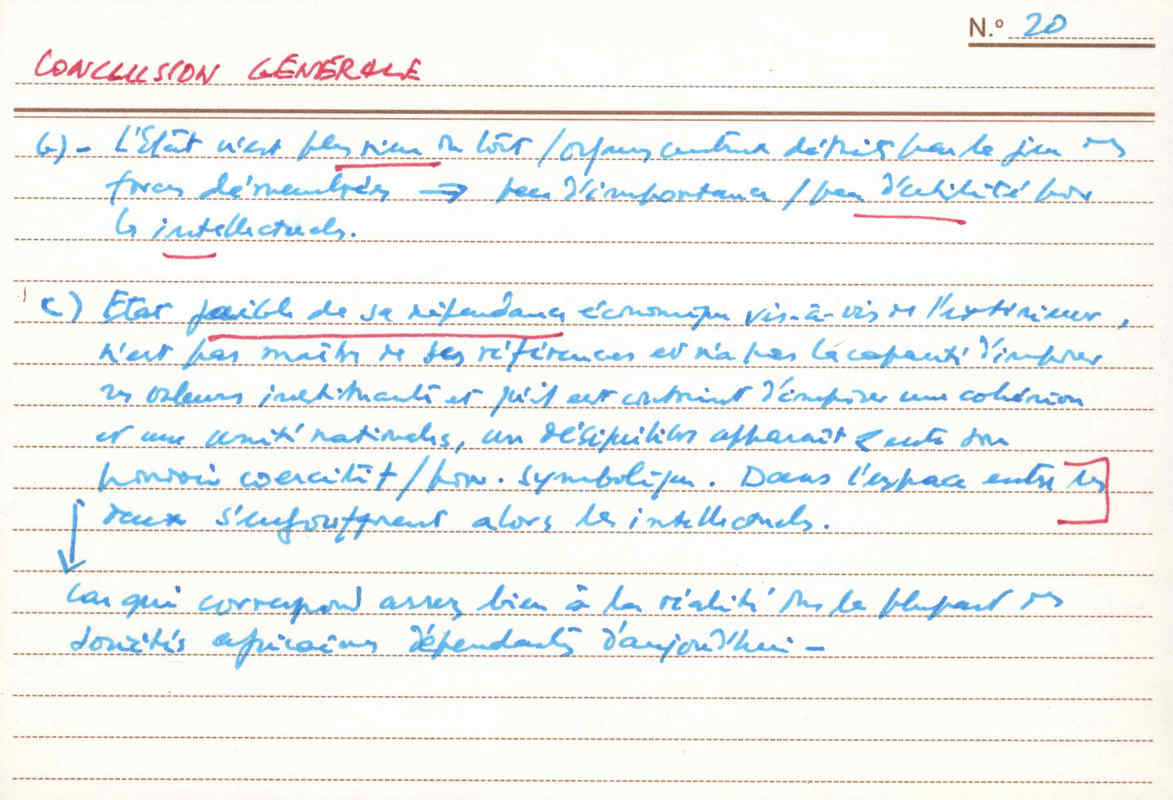 N.º 20
CONCLUSION GÉNÉRALE
b) - L'Etat n'est plus rien du tout / organes centraux détruits par le jeu des
forces démembrées → peu d'importance / peu d'utilité pour
les intellectuels.
c) Etat faible de sa dépendance économique vis-à-vis de l'extérieur,
n'est pas maître de ses références et n'a pas la capacité d'imposer
ses valeurs et qu'il est contraint d'imposer une cohésion
et une unité nationales, un déséquilibre apparaît entre son
pouvoir coercitif / pouv. symbolique. Dans l'espace entre les
deux s'engouffrent alors les intellectuels.
Cas qui correspond assez bien à la réalité de la plupart des
sociétés africaines dépendantes d'aujourd'hui -